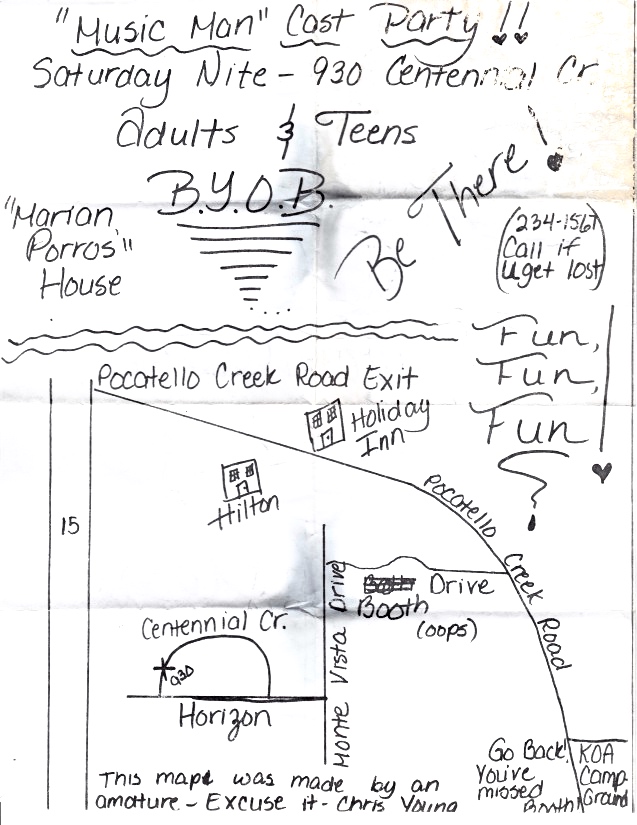 "Music Man" Cast Party!!
Saturday Nite - 930 Centennial Cr.
Adults & Teens
B.Y.O.B.
Be There!
"Marian
Porros'"
House
(234-1567
Call if
U get lost)
Fun,
Fun,
Fun!
Pocatello Creek Road Exit
Holiday
Inn
Hilton
15
Pocatello Creek Road
Drive
Booth
(oops)
Monte Vista Drive
Centennial Cr.
930
Horizon
Go Back!
You've
missed
Booth!
KOA
Camp
Ground
This mape was made by an
amature - Excuse it - Chris Young